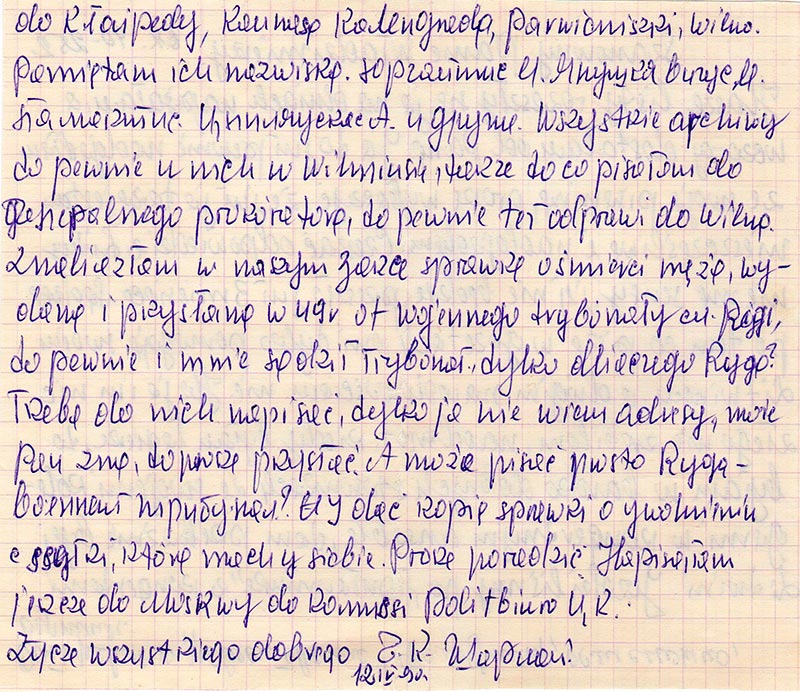 do Kłaipedy, Kaunasa Kalengrada, parwieniszki, Wilno.
Pamiętam ich nazwiska. sopranmie И. Якушка Витус, И.
Тамолюнис. А. и други. Wszystkie archiwy
to pewnie u nich w Wilniusie, także to co pisałam do
Generalnego prokóratora, to pewnie też odprawi do Wilna.
Znaliazłam w naszym Zakcе sprawkę o śmierci męża, wy-
daną i przysłaną w 49r of wojennego trybonały cм. Rigi,
to pewnie i mnie sądził Trybónał, dylko dlaczego Ryga?
Trzeba do nich napisać, dylko ja nie wiem adresy, może
Pan zna, to proszę przysłać. A może pisać prosto Ryga-
Военный трибунал? И dać kopię sprawki o zwolnieniu
с ssyłki, którą mach u siebie. Proszę poradzić. Napisałam
jeszcze do Moskwy do komissi Politbiuro Ц.К.
Życzę wszystkiego dobrego Е.К.
12 IV 90г.